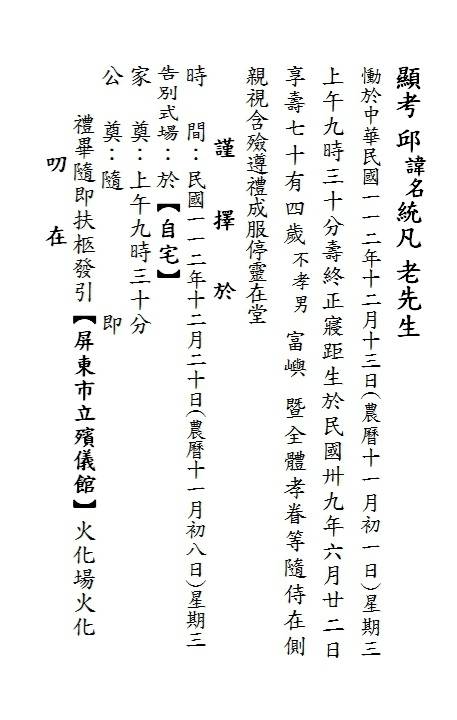 顯考邱諱名統凡老先生
慟於中華民國一一二年十二月十三日(農曆十一月初一日)星期三
上午九時三十分壽終正寢距生於民國卅九年六月廿二日
享壽七十有四歲不孝男富嶼暨全體孝眷等隨侍在側
親視含殮遵禮成服停靈在堂
謹擇於
時間：民國一一二年十二月二十日(農曆十一月初八日)星期三
告別式場：於【自宅】
家奠：上午九時三十分
公奠：隨即
禮畢隨即扶柩發引【屏東市立殯儀館】火化場火化
叨在